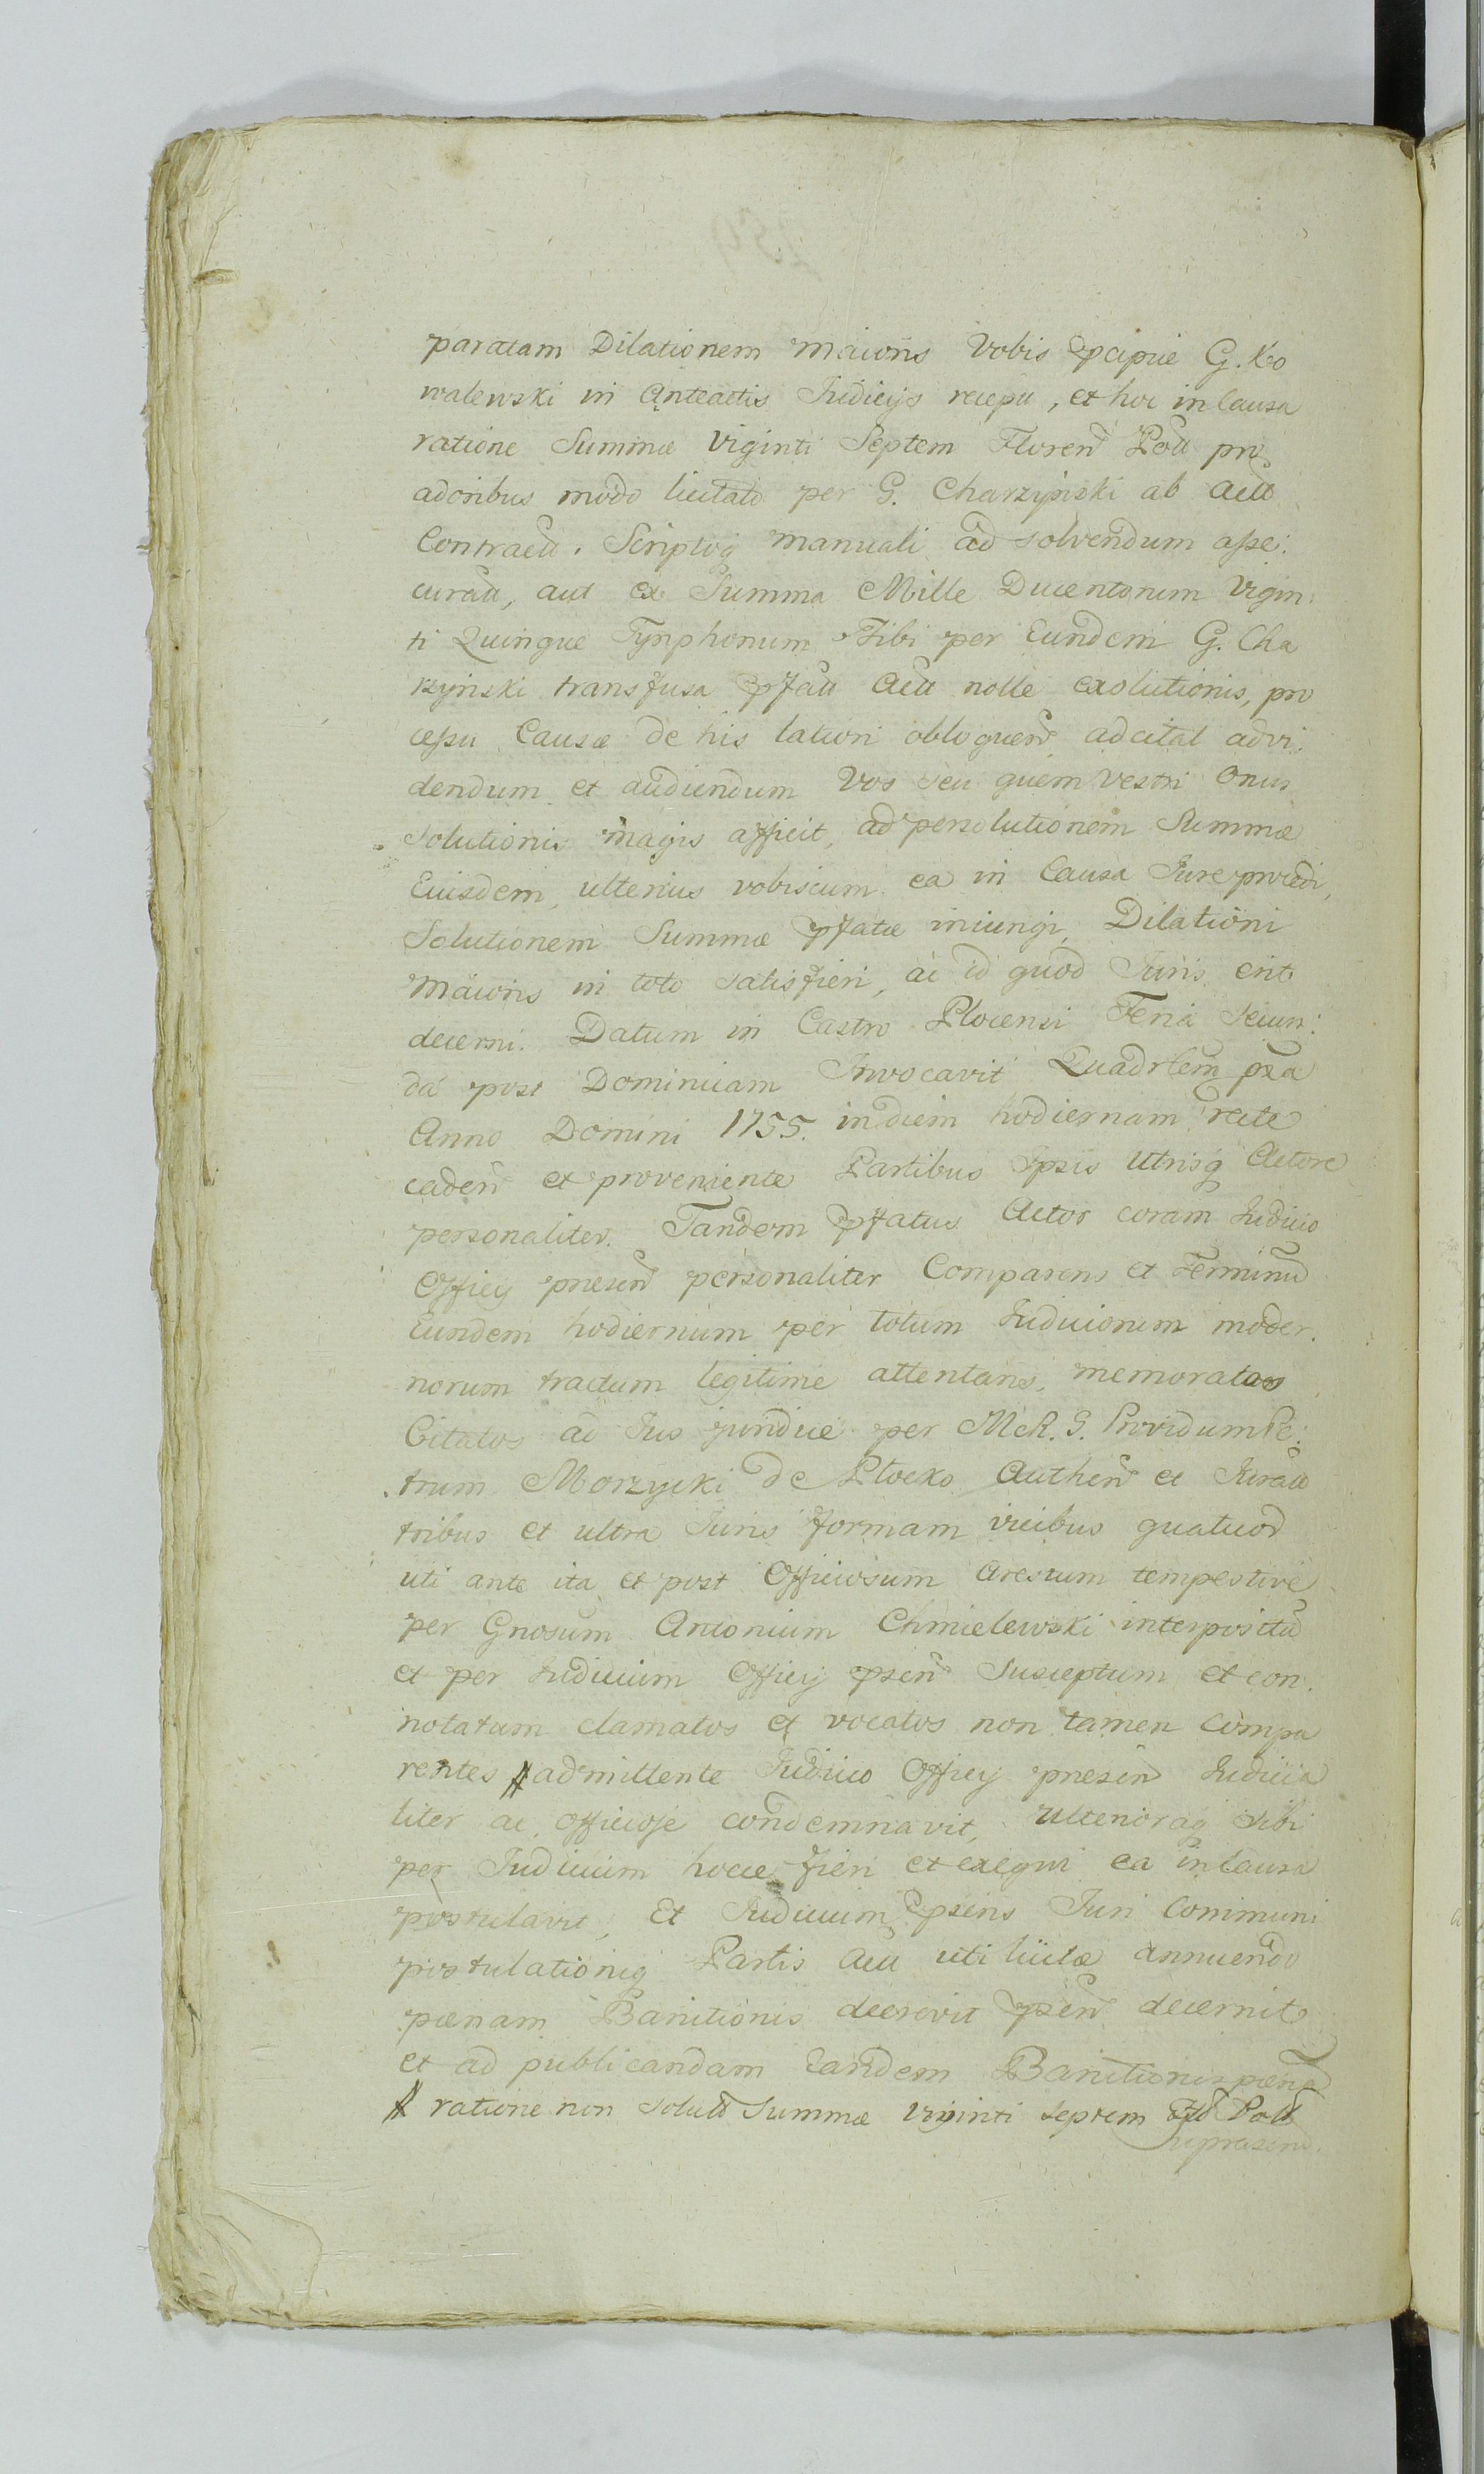 paratam Dilationem maioris Vobis pcipue G. Ko
walewski in Anteactis Judicijs recepti, et hoc in Causa
ratione Summæ Viginti Septem Floren Poll pro
adoribus modo licitato per G. Charzyński ab Acto
Contracti. Scriptoq manuali ad solvendum asse:
curati, aut ex Summa Mille Ducentorum Vigin:
ti Quinque Tynphonum Sibi per Eundem G. Cha
rzyński transfusa pfati Acti nolle exolutionis, pro
cessu Causæ de his latiori obloquen adcitat advi:
dendum et audiendum Vos seu quem vestri Onus
Solutionis magis afficit, ad persolutionem Summæ
Eiusdem, ulterius vobiscum ea in Causa Jure procedi,
Solutionem Summæ pfatæ iniungi, Dilationi
Maioris in toto satisfieri, ac id quod Juris erit
decerni. Datum in Castro Plocensi Feria Secun:
da post Dominicam Invocavit Quadrlem pxa
Anno Domini 1755. in diem hodiernam recte
caden et proveniente Partibus Ipsis Utrisq Actore
personaliter. Tandem pfatus Actor coram Judicio
Officij presen personaliter Comparens et Terminu
Eundem hodiernum per totum Judiciorum moder.
norum tractum legitime attentans, memoratos
Citatos ad Jus juridice per M R. G. Providum Pe:
trum Morzycki de Plocko Authen et Jurato
tribus et ultra Juris formam vicibus quatuor
uti ante ita et post Officiosum Arestum tempestive
per Gnosum Antonium Chmielewski interpositu
et per Judicium Officij psen Susceptum et con.
notatum clamatos et vocatos non tamen Compa
rentes # admittente Judicio Officij presen Judicia
liter ac officiose condemnavit, Ulterioraq Sibi
per Judicium hocce fieri et exequi ea in Causa
postulavit, Et Judicium psens Juri Communi
postulationiq Partis Acti uti licitæ annuendo
pænam Banitionis decrevit psen decernit
et ad publicandam Eandem Banitionis pæna
# ratione non soluto Summæ Viginti septem Flo Poll